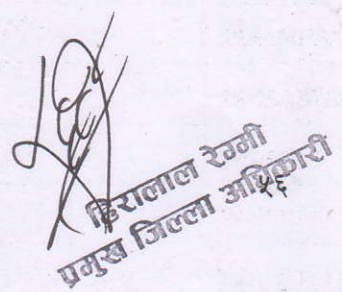 हिरालाल रेग्मी
प्रमुख जिल्ला अधिकारी
५६